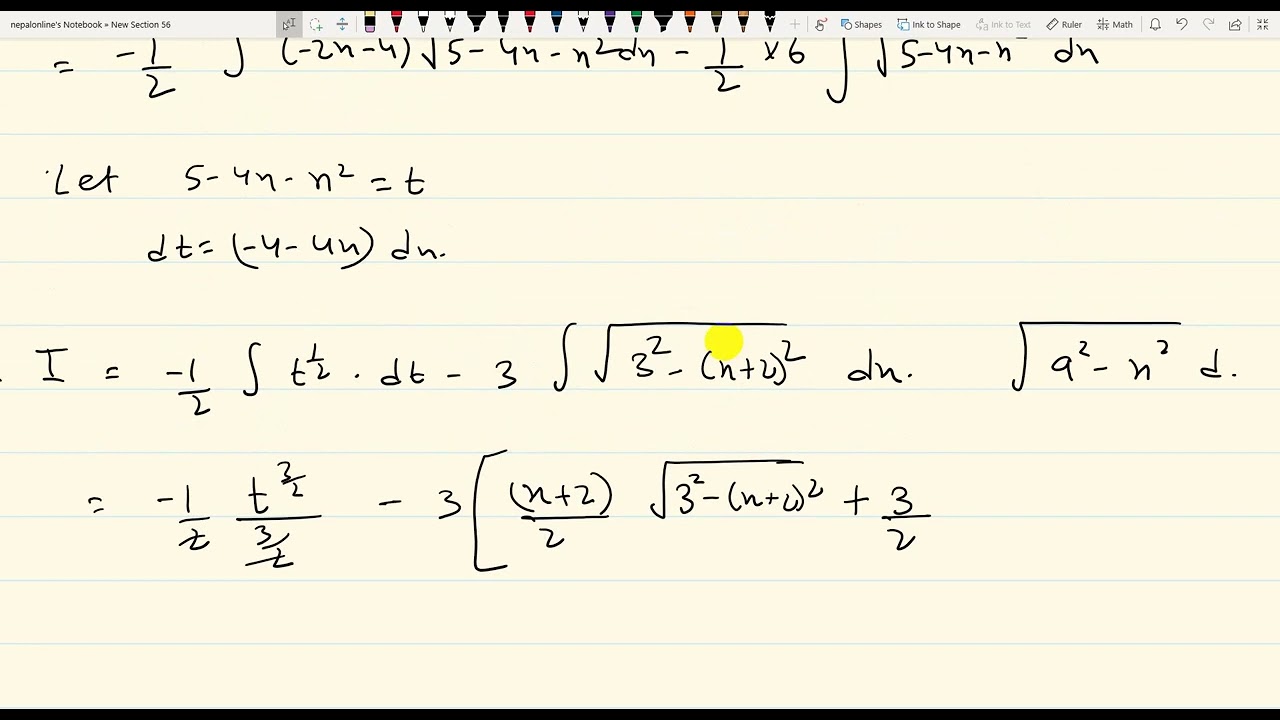 nepalonline's Notebook » New Section 56
Shapes Ink to Shape Ink to Text Ruler Math
= -1/2 ∫ (-2x-4) √5-4x-x² dx - 1/2 × 6 ∫ √5-4x-x² dx
Let 5-4x-x² = t
dt = (-4-4x) dx.
I = -1/2 ∫ t^1/2 . dt - 3 ∫ √3²-(x+2)² dx. √a²-x² d.
= -1/2 t^3/2 / 3/2 - 3 [ (x+2)/2 √3²-(x+2)² + 3/2